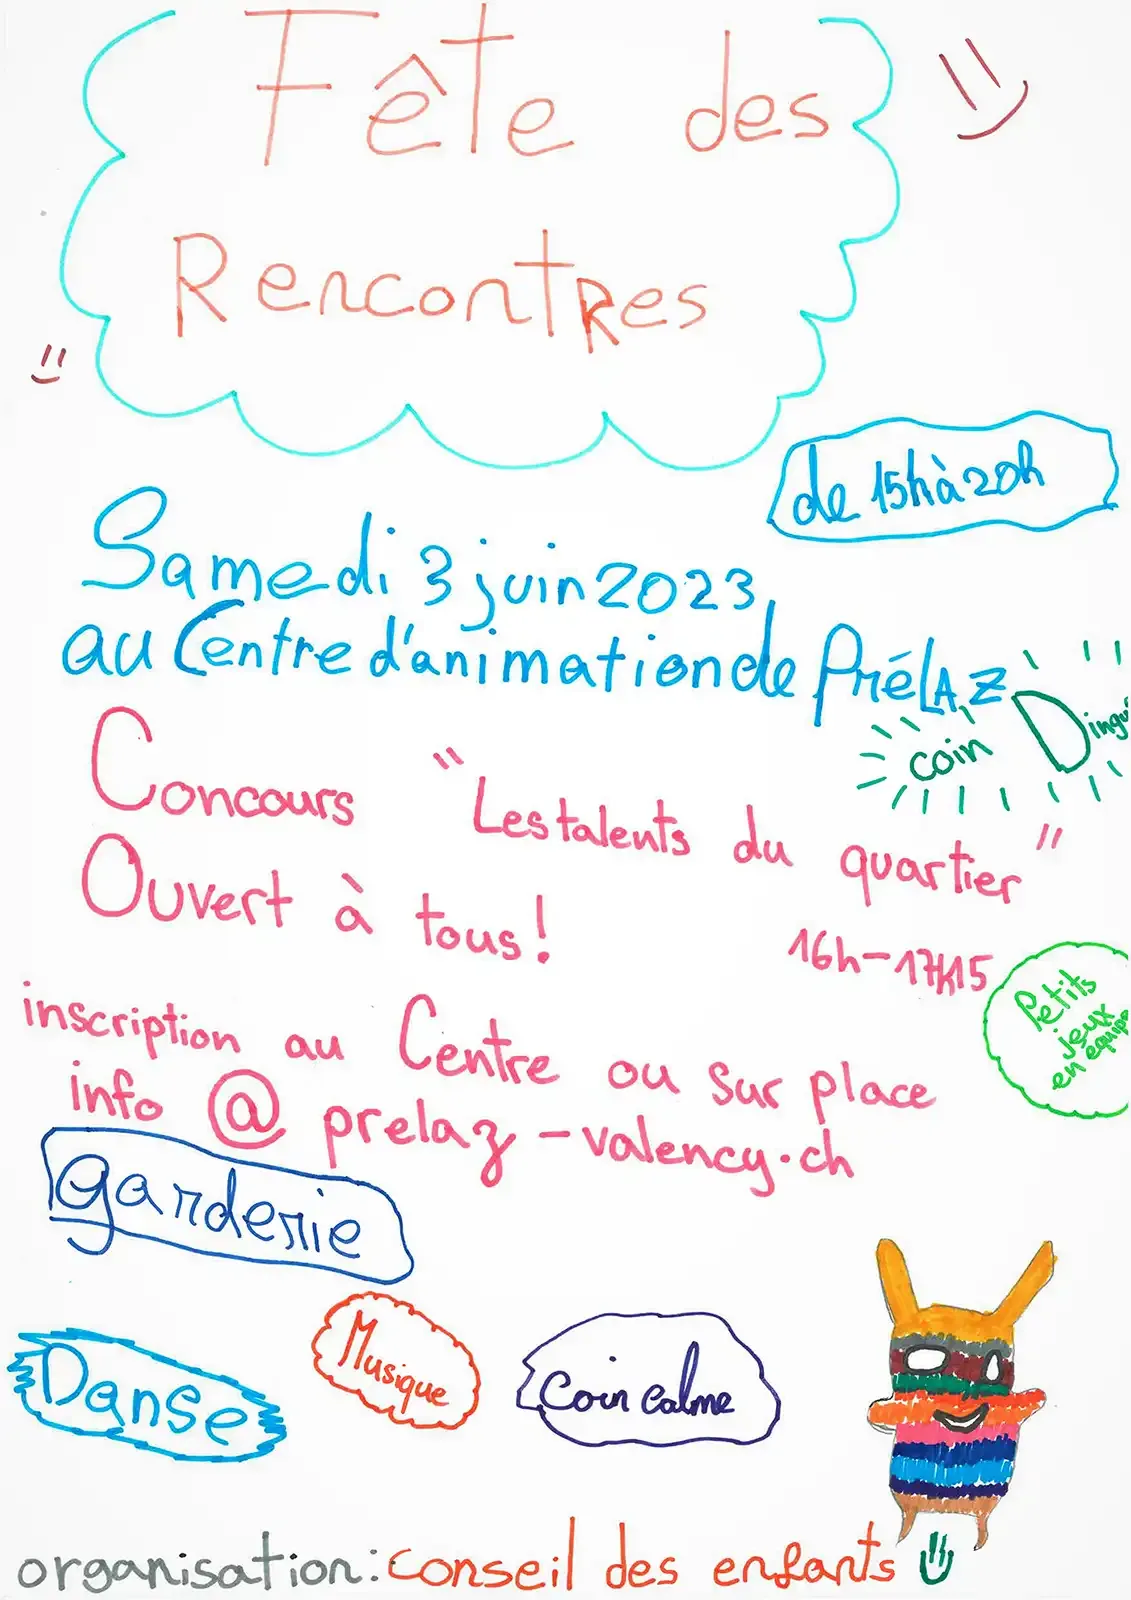 Fête des
Rencontres
de 15h à 20h
Samedi 3 juin 2023
au Centre d'animation de PréLAZ
coin
Concours "Les talents du quartier"
Ouvert à tous!
16h-17h15
Petits
jeux
en équipe
inscription au Centre ou sur place
info @ prelaz-valency.ch
garderie
Musique
Danse
Coin calme
organisation: conseil des enfants